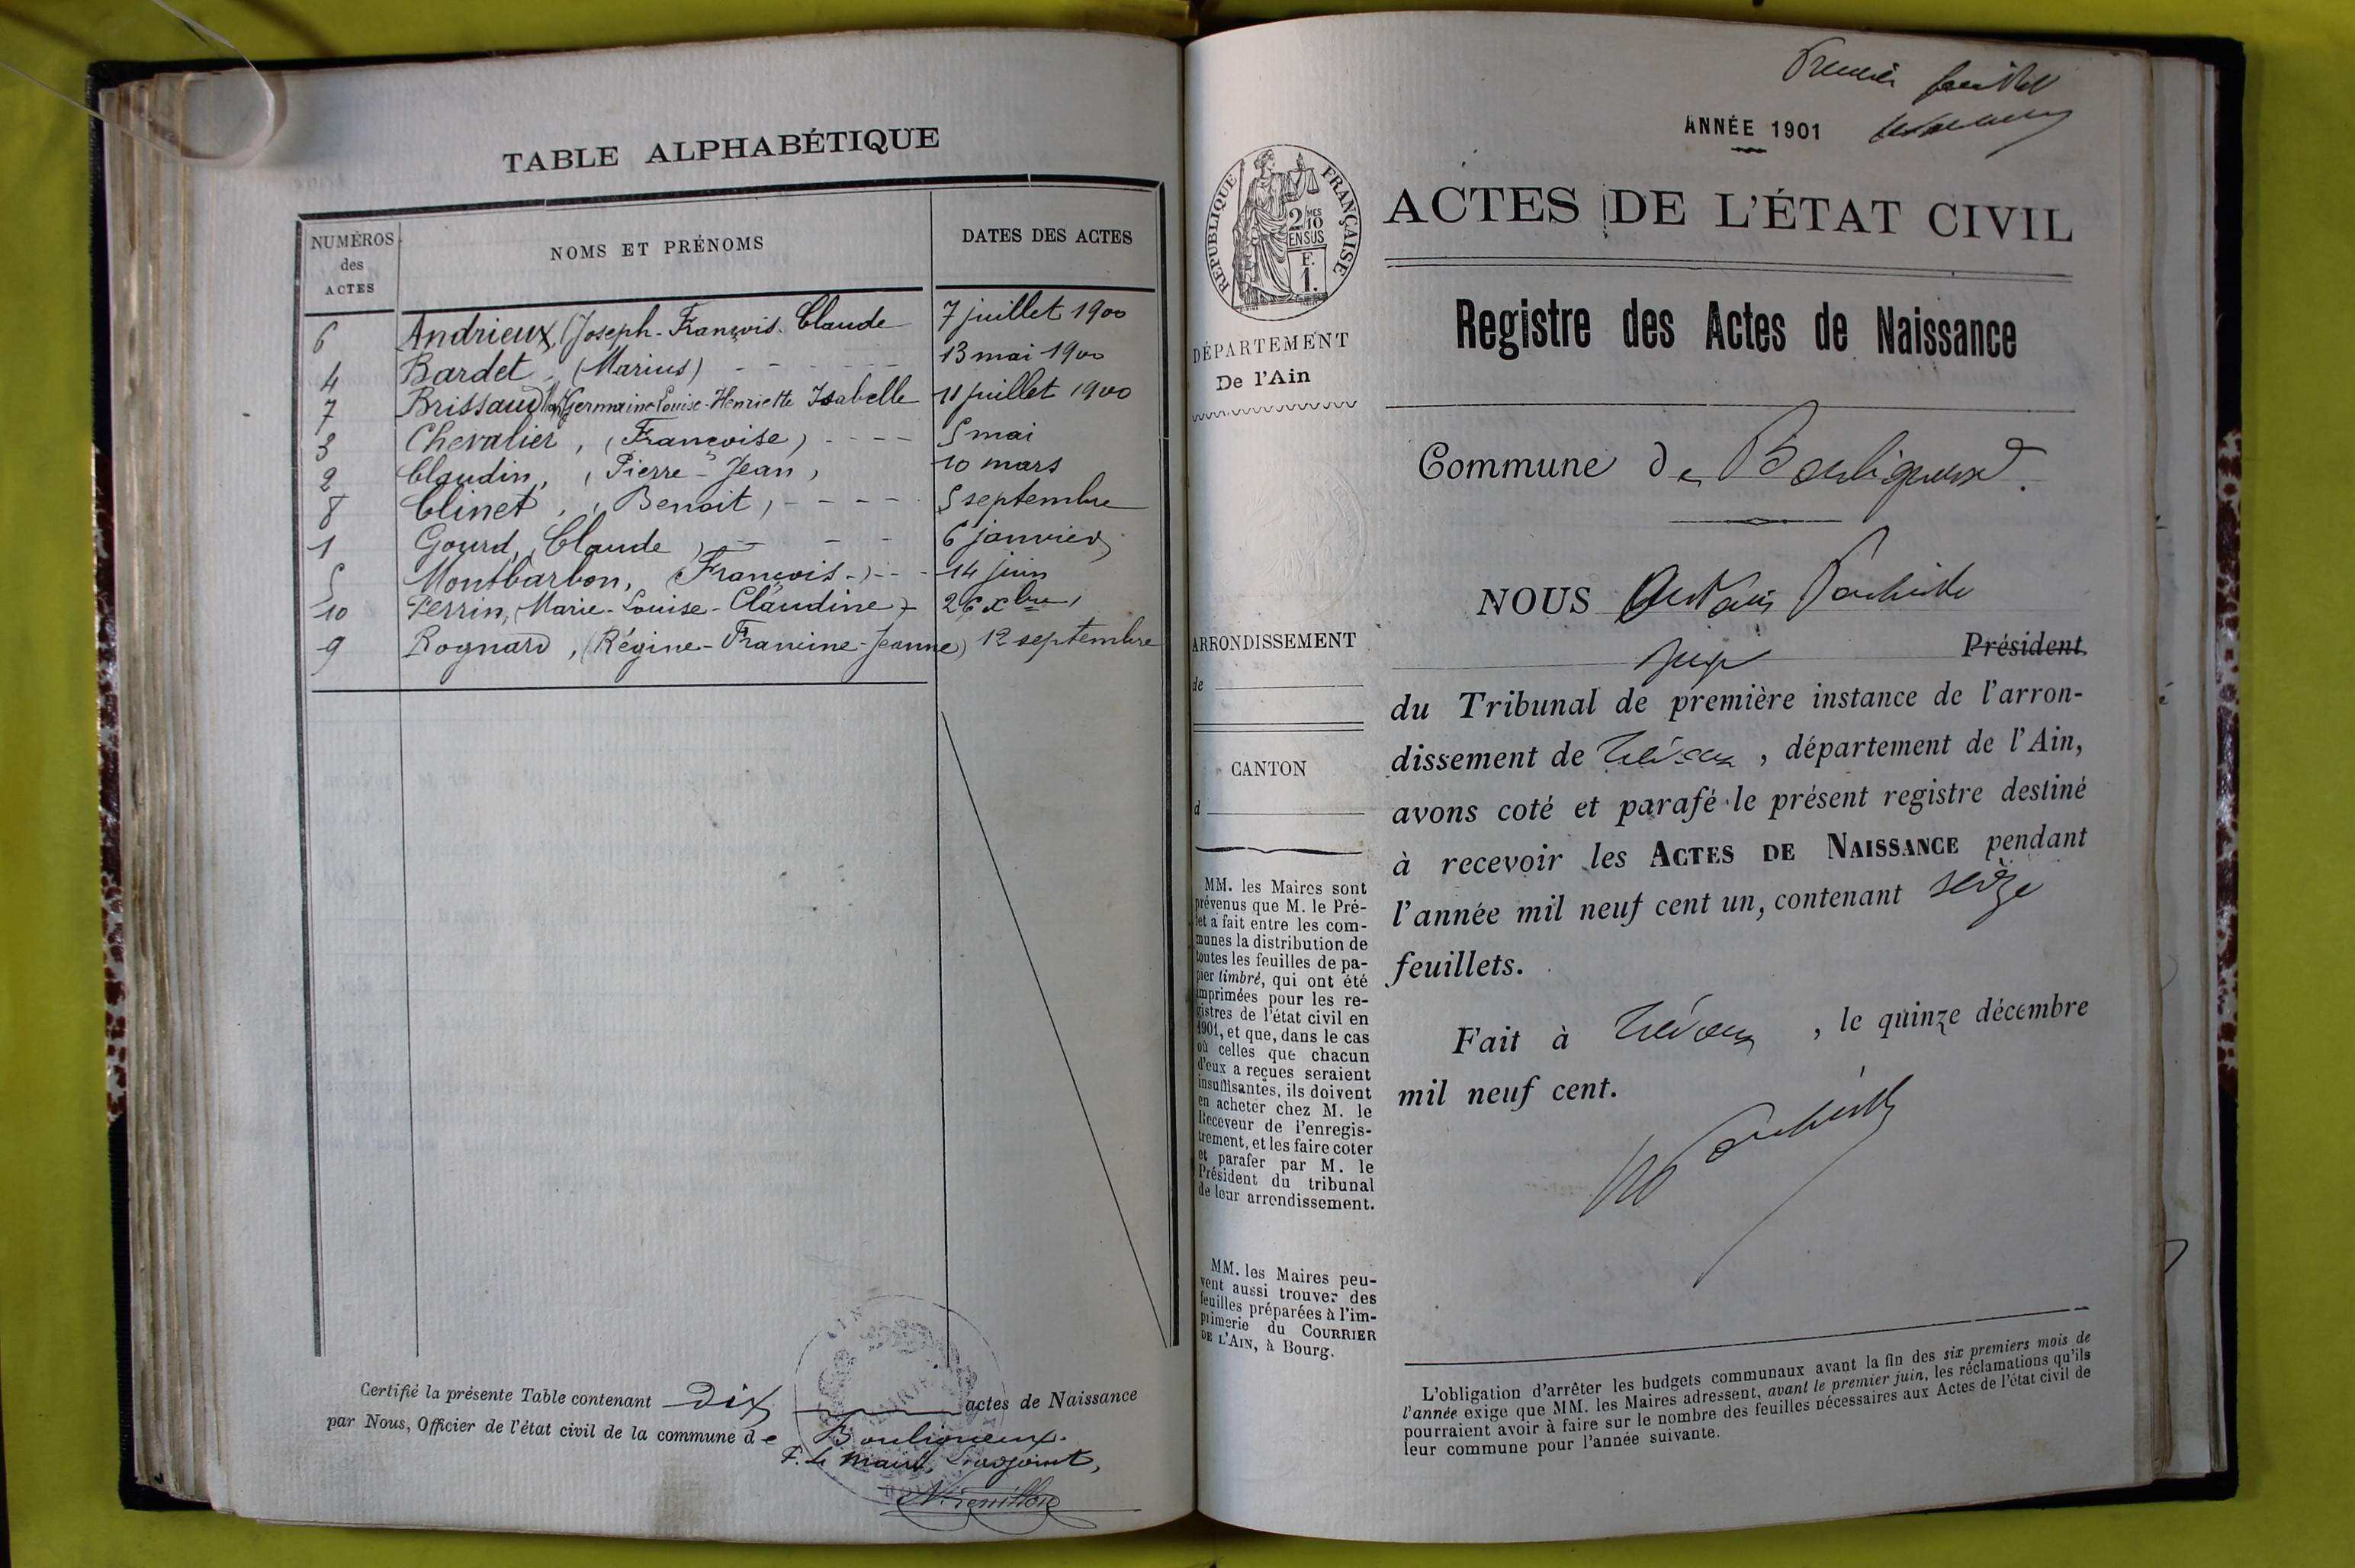 TABLE ALPHABÉTIQUE
NUMÉROS des ACTES NOMS ET PRÉNOMS DATES DES ACTES
6 Andrieux, (Joseph-François-Claude 7 juillet 1900
4 Bardet, (Marius) - - - - - 13 mai 1900
7 Brissaud Germaine-Louise-Henriette Isabelle 11 juillet 1900
3 Chevalier, (Françoise) - - - - 5 mai
2 Claudin, (Pierre-Jean) 10 mars
8 Clinet, (Benoit) - - - - 5 septembre
1 Gourd, (Claude) - - - 6 janvier
5 Montbarbon, (François-) - - - 14 juin
10 Perrin, (Marie-Louise-Claudine) - 26 Xbre
9 Rognard, (Régine-Francine-Jeanne) 12 septembre
Certifié la présente Table contenant dix actes de Naissance
par Nous, Officier de l'état civil de la commune de Bouligneux.
P. le Maire, l'adjoint,
Premier feuillet
ANNÉE 1901
ACTES DE L'ÉTAT CIVIL
RÉPUBLIQUE FRANÇAISE
2/10 MES
EN SUS
F.
1.
Registre des Actes de Naissance
DÉPARTEMENT
De l'Ain
Commune de Bouligneux.
NOUS
juge Président
ARRONDISSEMENT
de
du Tribunal de première instance de l'arron-
dissement de Trévoux, département de l'Ain,
CANTON
d
avons coté et parafé le présent registre destiné
à recevoir les ACTES DE NAISSANCE pendant
l'année mil neuf cent un, contenant seize
feuillets.
Fait à Trévoux, le quinze décembre
mil neuf cent.
MM. les Maires sont
prévenus que M. le Pré-
fet a fait entre les com-
munes la distribution de
toutes les feuilles de pa-
pier timbré, qui ont été
imprimées pour les re-
gistres de l'état civil en
1901, et que, dans le cas
où celles que chacun
d'eux a reçues seraient
insuffisantes, ils doivent
en acheter chez M. le
Receveur de l'enregis-
trement, et les faire coter
et parafer par M. le
Président du tribunal
de leur arrondissement.
MM. les Maires peu-
vent aussi trouver des
feuilles préparées à l'im-
primerie du COURRIER
DE L'AIN, à Bourg.
L'obligation d'arrêter les budgets communaux avant la fin des six premiers mois de
l'année exige que MM. les Maires adressent, avant le premier juin, les réclamations qu'ils
pourraient avoir à faire sur le nombre des feuilles nécessaires aux Actes de l'état civil de
leur commune pour l'année suivante.